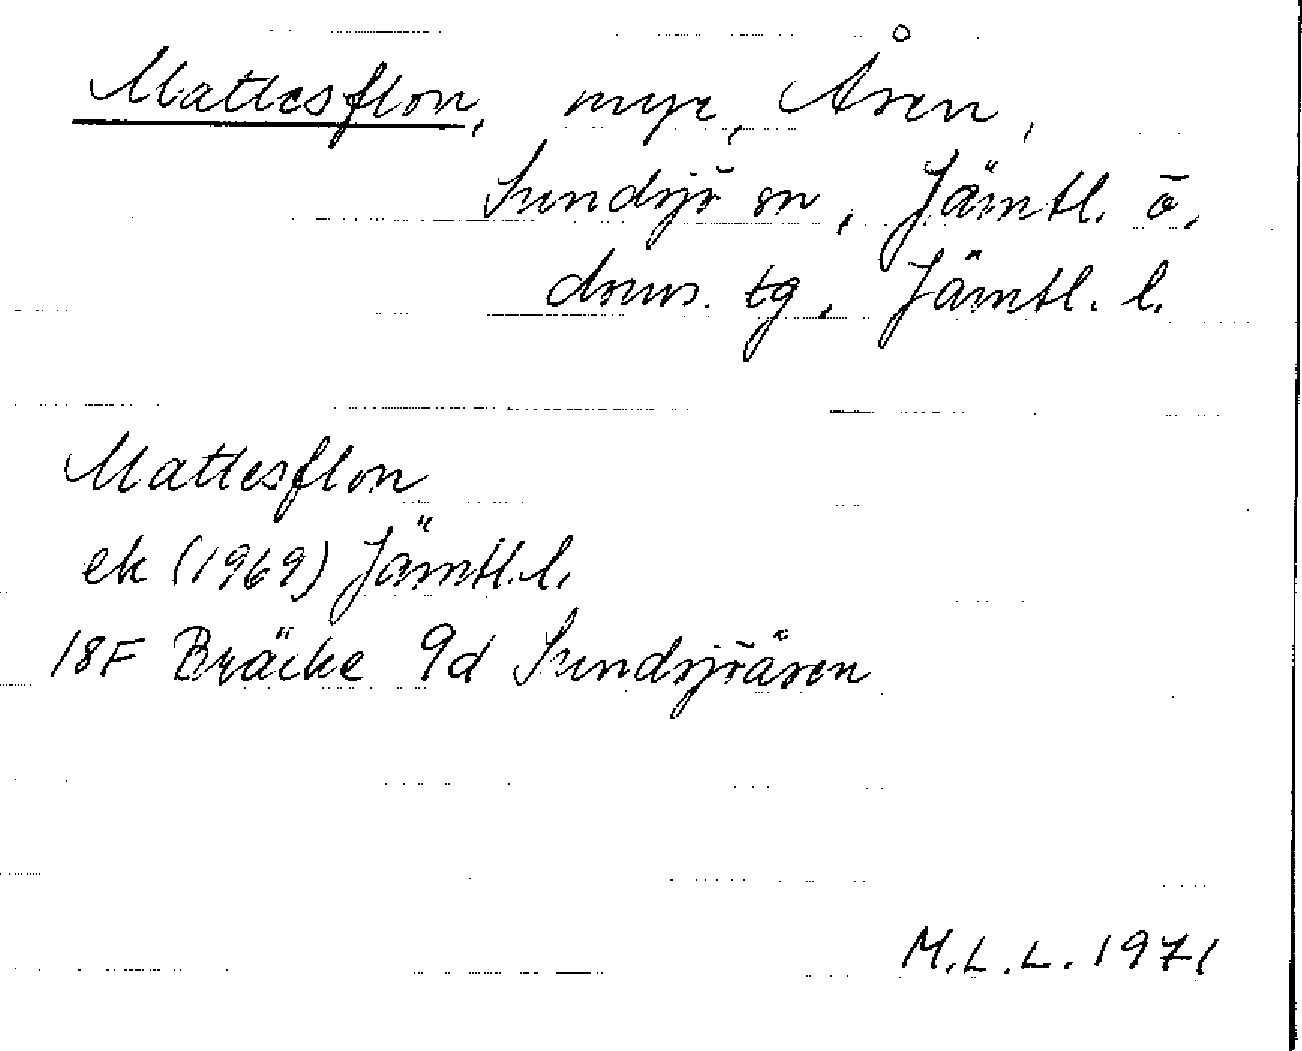 Mattesflon, myr, Åsen,
Sundsjö sn, Jämtl. ö.
doms. tg, Jämtl. l.
Mattesflon
ek (1969) Jämtl. l.
18F Bräcke 9d Sundsjöåsen
M.L.L. 1971